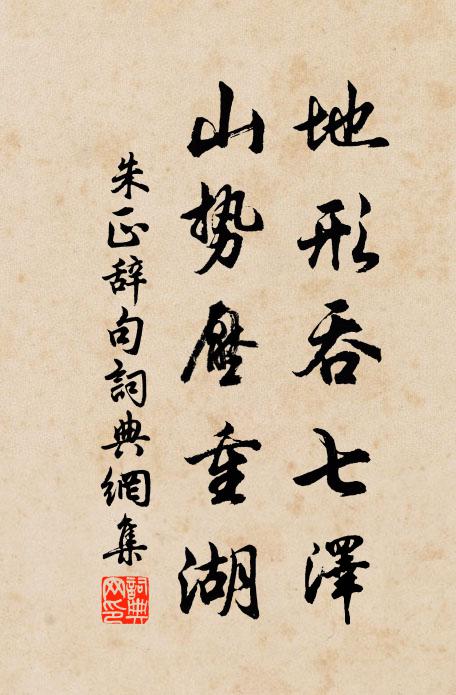 地形吞七澤
山势壓重湖
朱正辞句詞典網集
詞典網印